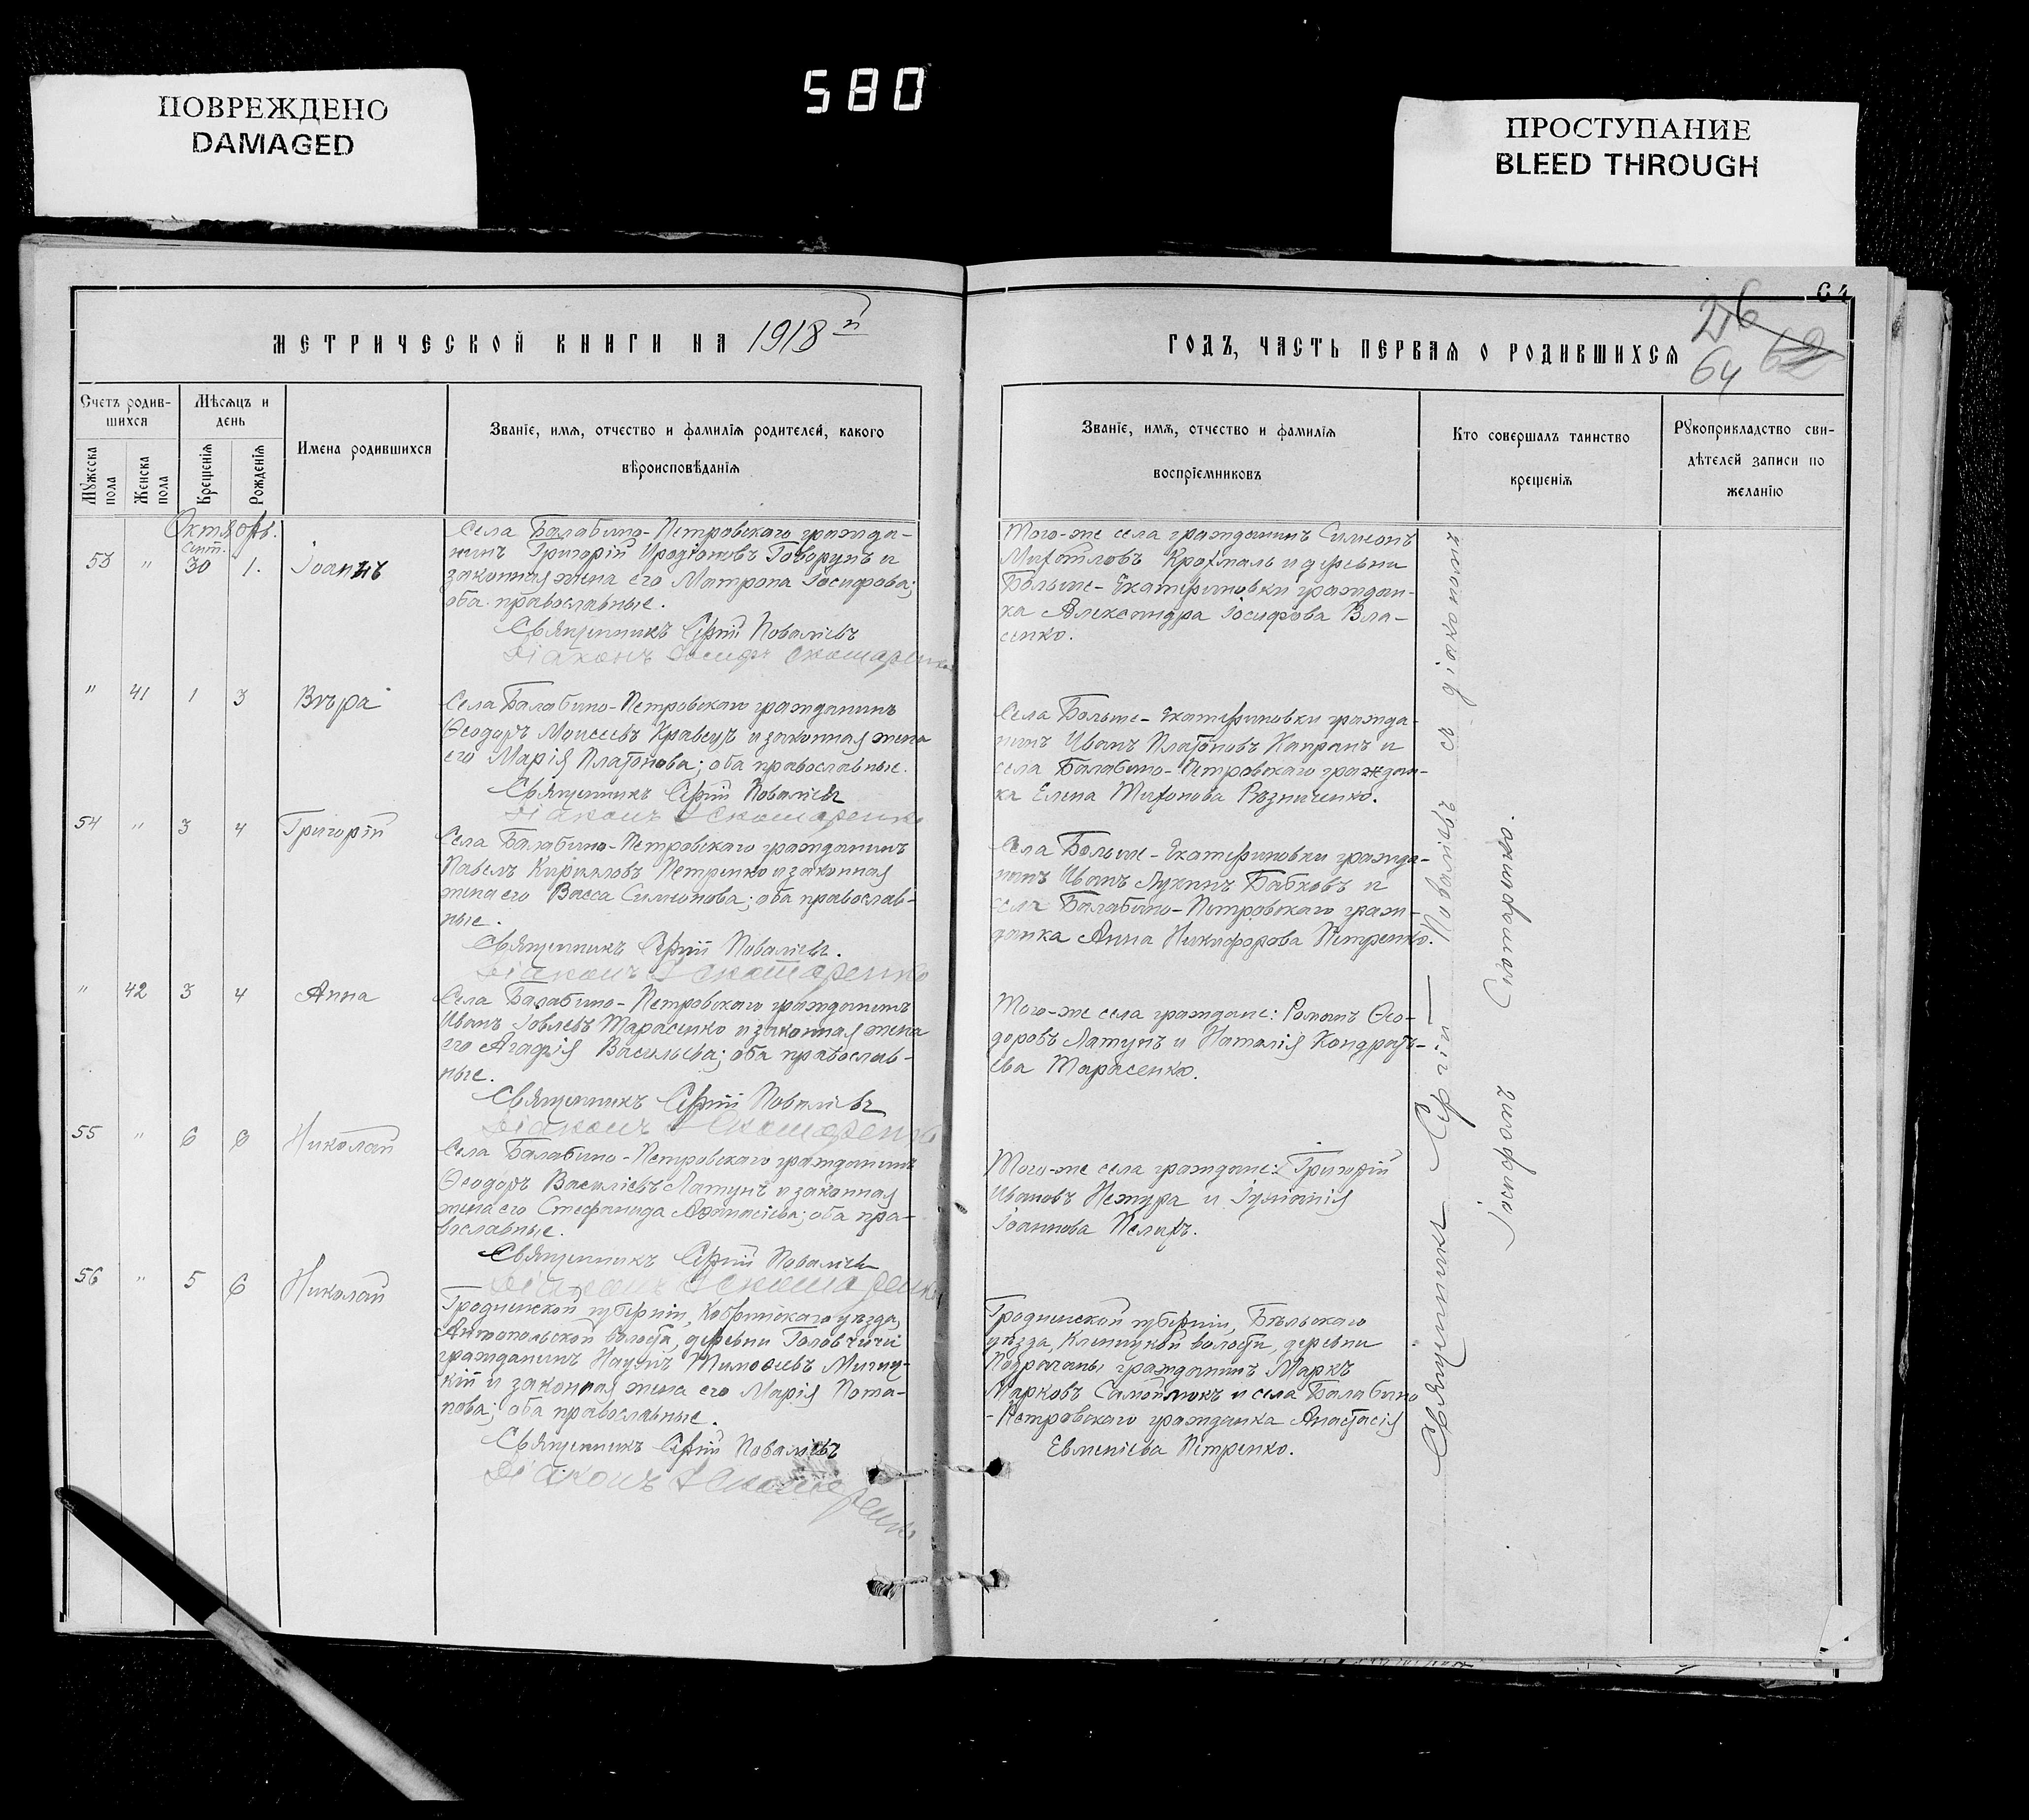 ПОВРЕЖДЕНО
DAMAGED
580
ПРОСТУПАНИЕ
BLEED THROUGH
МЕТРИЧЕСКОЙ КНИГИ НА 1918й
Счетъ родив-
шихся
Мужеска
пола
Женска
пола
Мѣсяцъ и
день
Крещенія
Рожденія
Имена родившихся
Званіе, имя, отчество и фамилія родителей, какого
вѣроисповѣданія
Октябрь.
53 " сент. 30 1. Іоаннъ
Села Балабино-Петровскаго гражда-
нинъ Григорій Иродіоновъ Говорунъ и
законная жена его Матрона Іосифова;
оба православные.
Священникъ Сергій Поваліевъ
Діаконъ Іосифъ Скомаренко
" 41 1 3 Вѣра
Села Балабино-Петровскаго гражданинъ
Ѳеодоръ Моисеевъ Кравецъ и законная жена
его Марія Платонова; оба православные.
Священникъ Сергій Поваліевъ
Діаконъ І Скомаренко
54 " 3 4 Григорій
Села Балабино-Петровскаго гражданинъ
Павелъ Кирилловъ Петренко и законная
жена его Васса Симеонова; оба православ-
ные.
Священникъ Сергій Поваліевъ.
Діаконъ І Скомаренко
" 42 3 4 Анна
Села Балабино-Петровскаго гражданинъ
Иванъ Іовлевъ Тарасенко и законная жена
его Агафія Васильева; оба православ-
ные.
Священникъ Сергій Поваліевъ
Діаконъ І Скомаренко
55 " 6 6 Николай
Села Балабино-Петровскаго гражданинъ
Ѳеодоръ Василіевъ Латунъ и законная
жена его Стефанида Аѳанасіева; оба пра-
вославные.
Священникъ Сергій Поваліевъ
Діаконъ І Скомаренко
56 " 5 6 Николай
Гродненской губерніи, Кобринскаго уѣзда,
Антопольской волости, деревни Головчичи
гражданинъ Наумъ Тимоѳеевъ
и законная жена его Марія Пота-
пова; оба православные.
Священникъ Сергій Поваліевъ
Діаконъ І Скомаренко
64
ГОДЪ, ЧАСТЬ ПЕРВАЯ О РОДИВШИХСЯ
26
62
64
Званіе, имя, отчество и фамилія
воспріемниковъ
Кто совершалъ таинство
крещенія
Рукоприкладство сви-
дѣтелей записи по
желанію
Того-же села гражданинъ Симеонъ
Михаиловъ Крохмаль и деревни
Больше-Екатериновки граждан-
ка Александра Іосифова Вла-
сенко.
Села Больше-Екатериновки гражда-
нинъ Иванъ Платоновъ Капранъ и
села Балабино-Петровскаго граждан-
ка Елена Тихонова Рѣзниченко.
Села Больше-Екатериновки гражда-
нинъ Иванъ Лукинъ Бабковъ и
села Балабино-Петровскаго граж-
данка Анна Никифорова Петренко.
Того-же села граждане: Романъ Ѳео-
доровъ Латунъ и Наталія Кондрать-
ева Тарасенко.
Того-же села граждане: Григорій
Ивановъ Нежура и Іуліанія
Іоаннова
Гродненской губерніи, Бѣльскаго
уѣзда, волости, деревни
гражданинъ Маркъ
Марковъ Самойлюкъ и села Балабино
-Петровскаго гражданка Анастасія
Евменіева Петренко.
Священникъ Сергій Поваліевъ съ діакономъ
Іосифомъ Скомаренко.